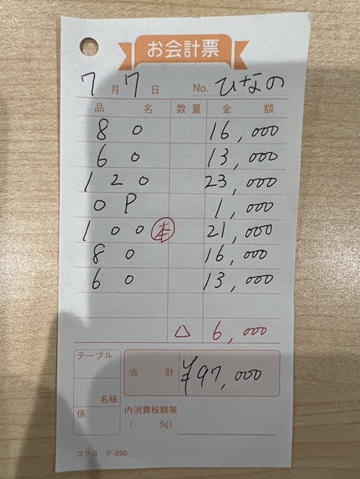 お会計票
7月7日 No. ひなの
品名 数量 金額
80 16,000
60 13,000
120 23,000
OP 1,000
100 本 21,000
80 16,000
60 13,000
△ 6,000
テーブル
名様
係
合計 ¥97,000
内消費税額等
( %)
コクヨ テ-250